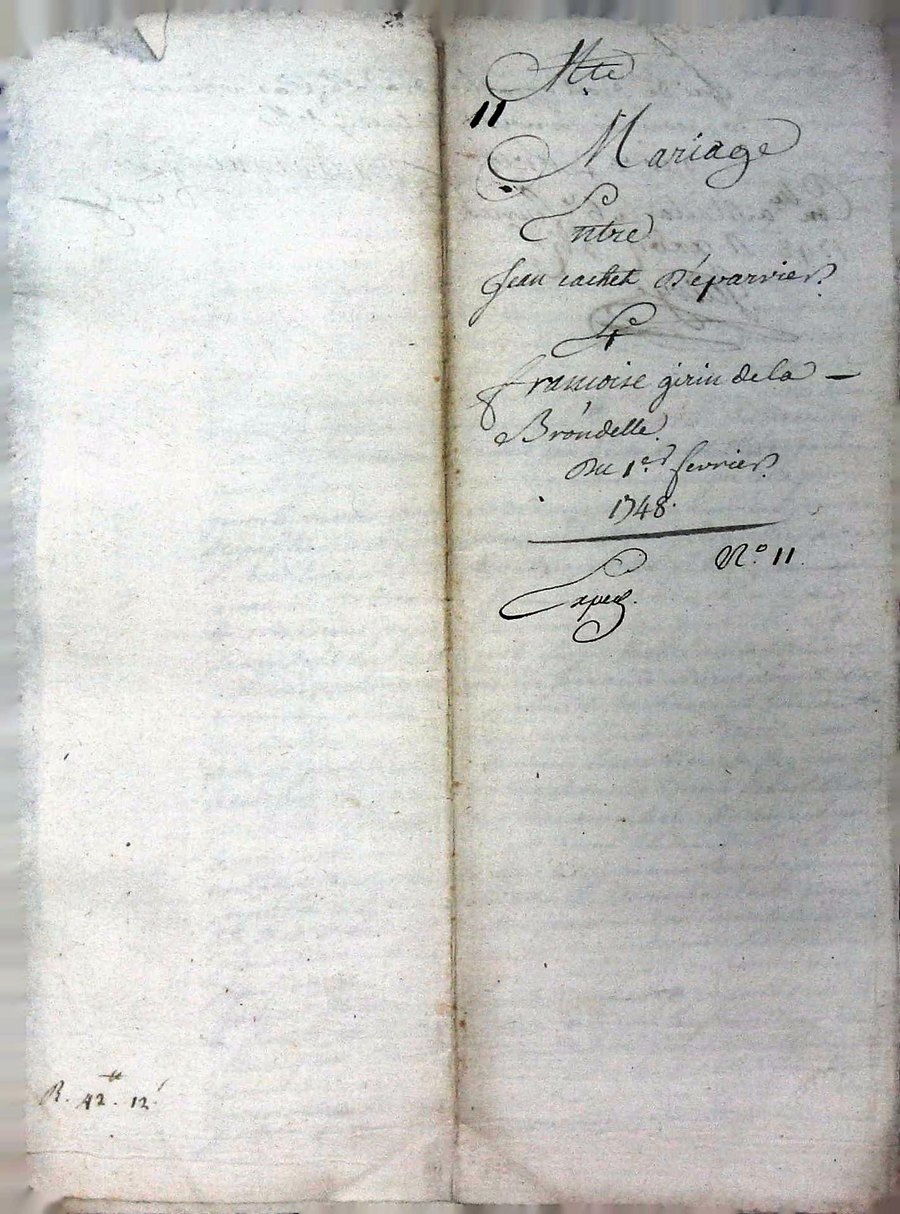 11
Mariage
Entre
Jean cachet D'eparvier
Et
francoise girin dela —
Brondelle.
Du 1er fevrier
1748.
No 11.
Exped.
R. 42tt. 12s